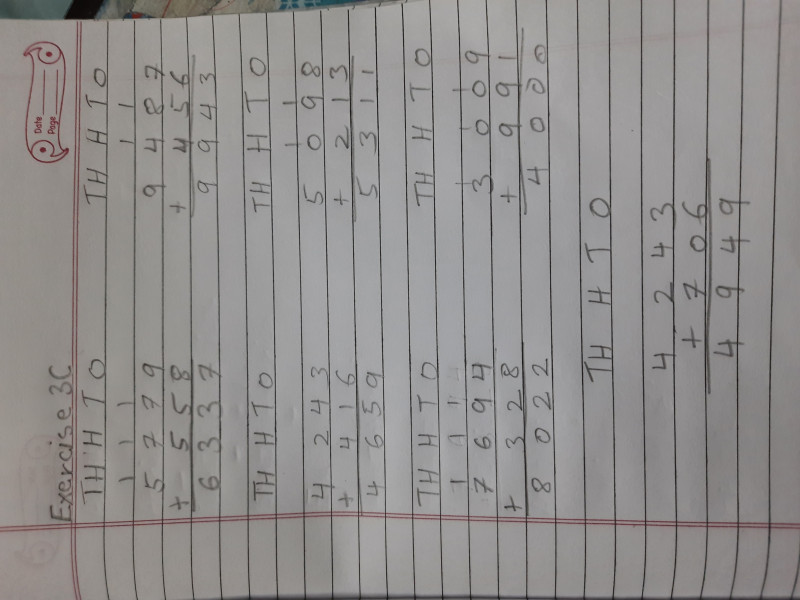 Date
Page
Exercise 3C
TH H T O    TH H T O
1 1 1    1 1
5 7 7 9    9 4 8 7
+ 5 5 8    + 4 5 6
6 3 3 7    9 9 4 3
TH H T O    TH H T O
1 1
4 2 4 3    5 0 9 8
+ 4 1 6    + 2 1 3
4 6 5 9    5 3 1 1
TH H T O    TH H T O
1 1 1    1 1 1
7 6 9 4    3 0 0 9
+ 3 2 8    + 9 9 1
8 0 2 2    4 0 0 0
TH H T O
4 2 4 3
+ 7 0 6
4 9 4 9